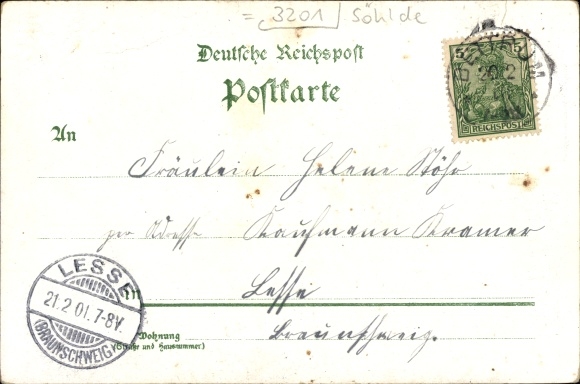 = (3201) Söhlde
Deutsche Reichspost
Postkarte
5 5
20 2
REICHSPOST
An
Fräulein Helene Stöhr
per Adresse Kaufmann Kramer
LESSE
21.2.01.7-8V.
(BRAUNSCHWEIG)
in Lesse
Braunschweig.
Wohnung
(Straße und Hausnummer)